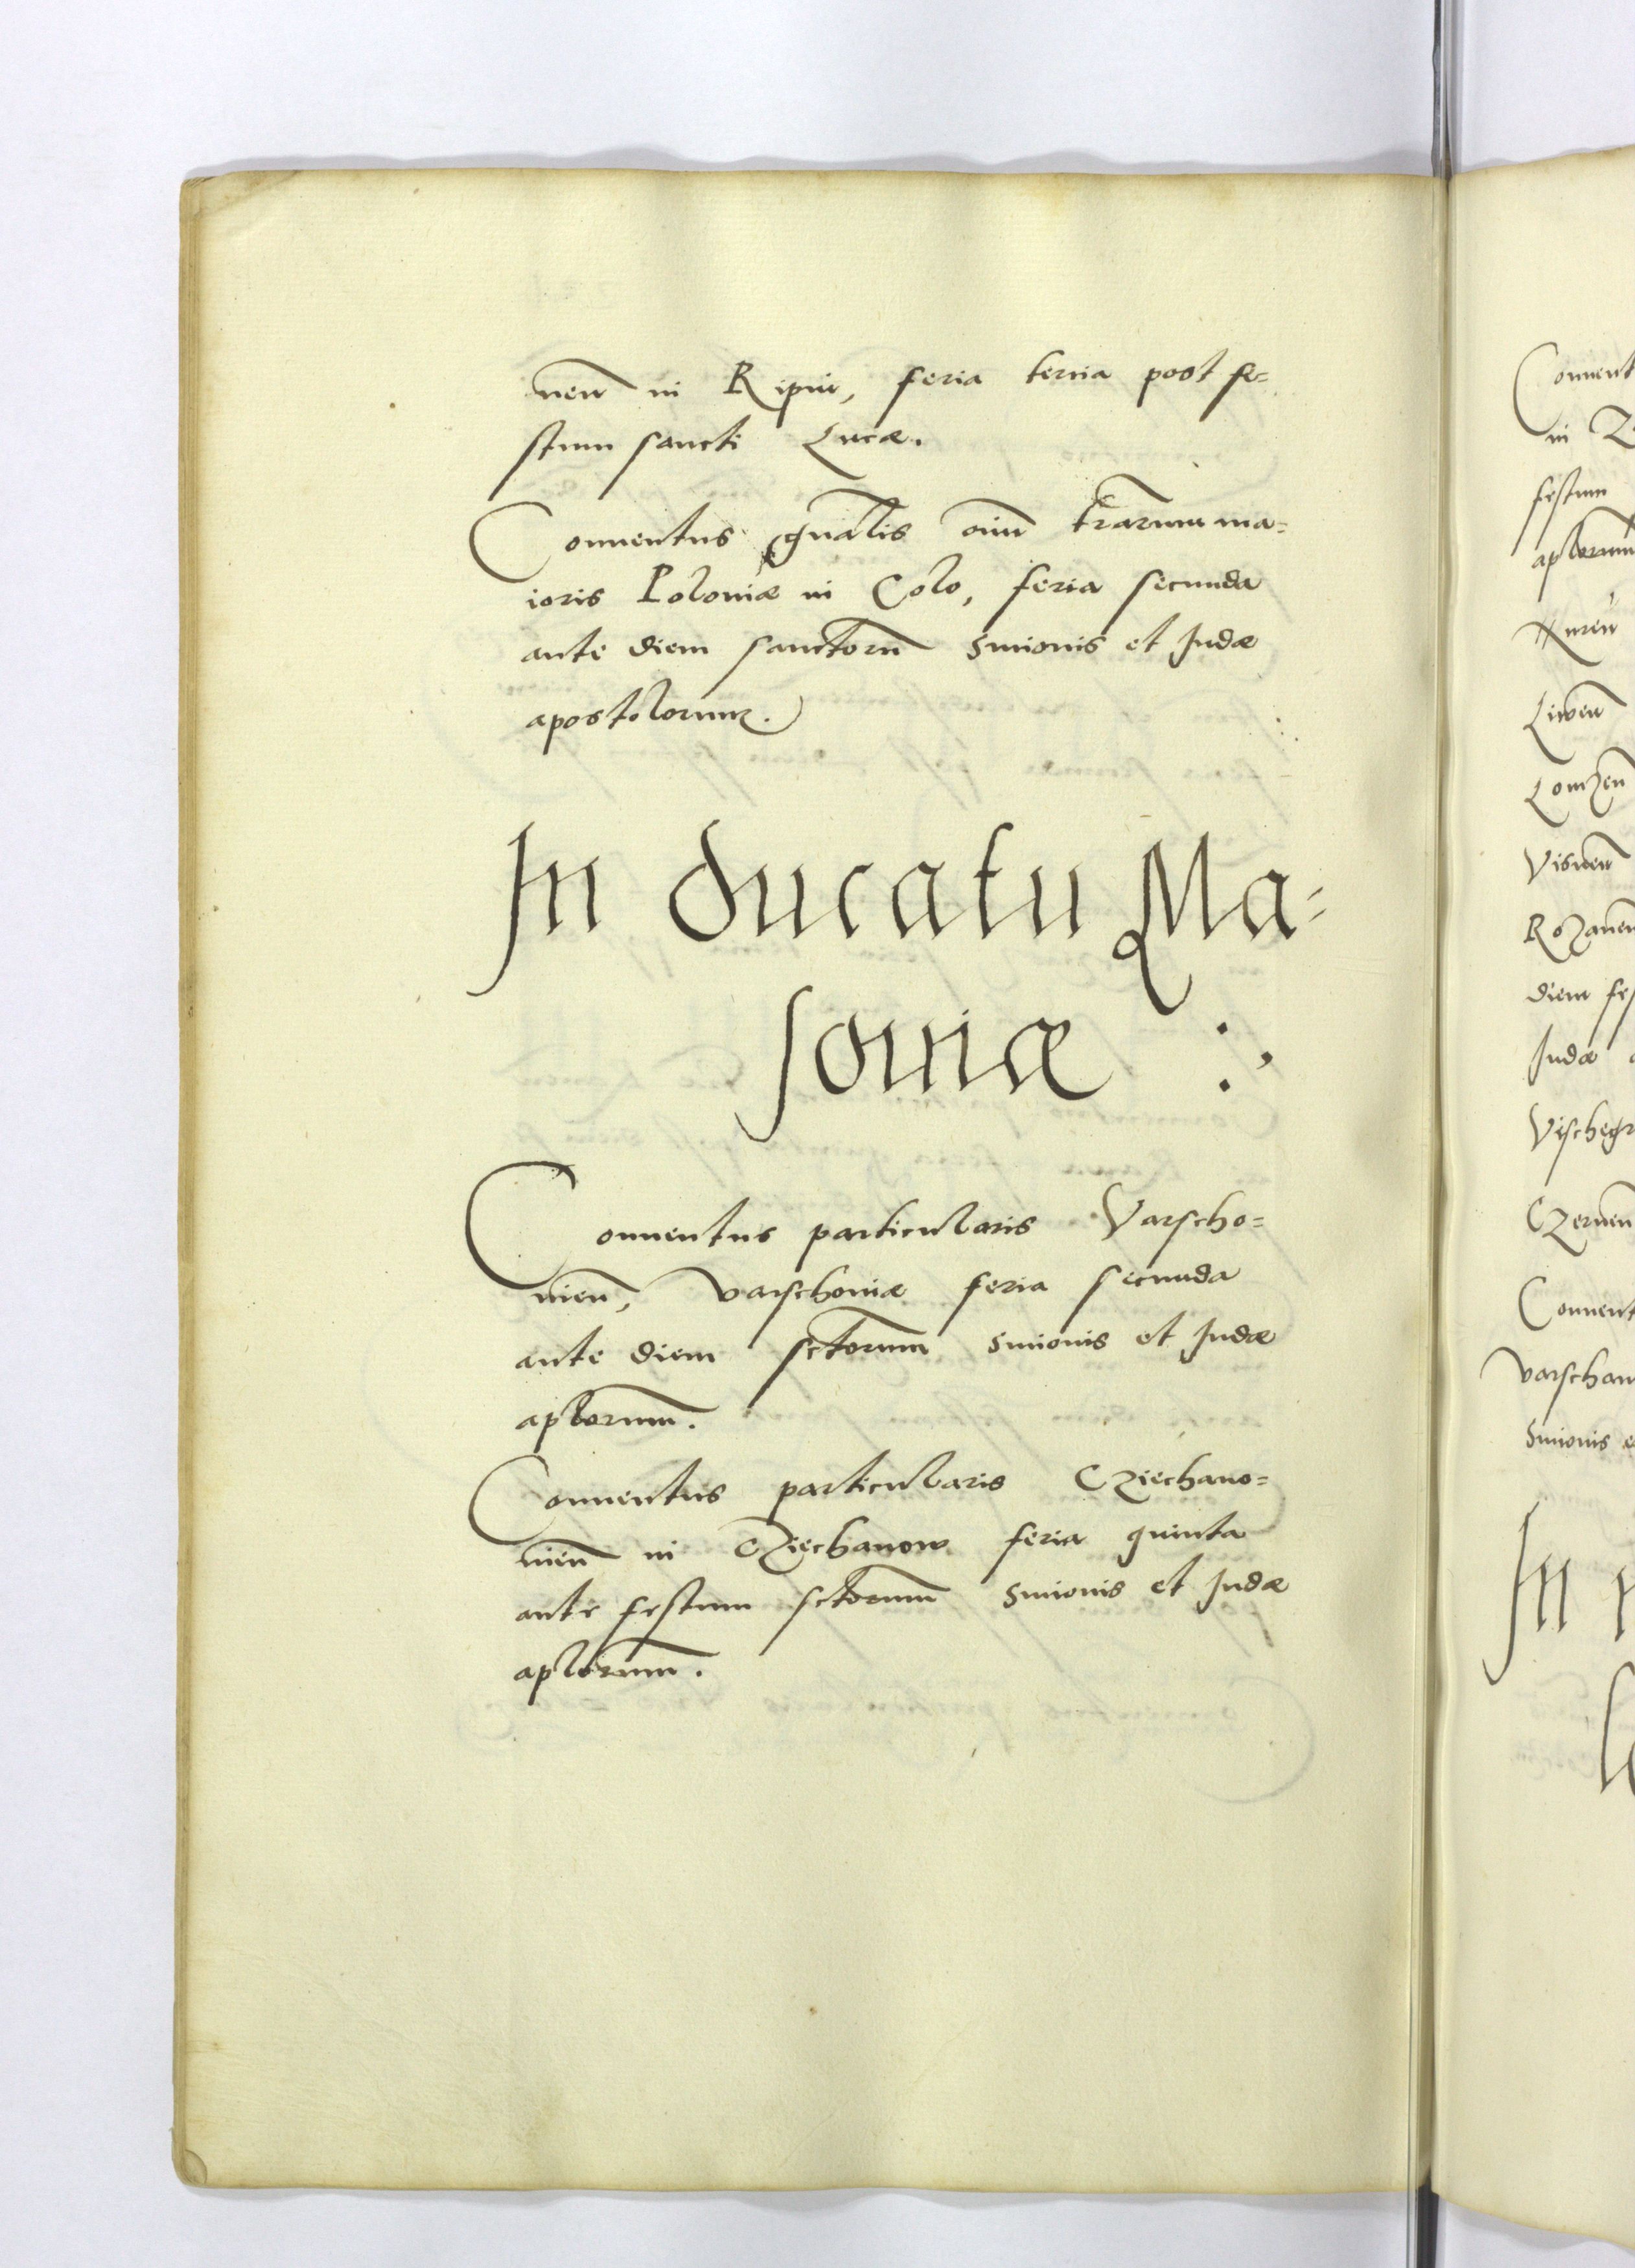 nen̄ in Ripin, feria tercia post fe=
stum sancti Lucæ.
Conuentus gn̄alis oīm tr̄arum ma=
ioris Poloniæ in Colo, feria secunda
ante diem sanctorū Simonis et Judæ
apostolorum.
In ducatu Ma=
souiæ :,
Conuentus particularis Varscho=
uien̄, Varschouiæ feria secunda
ante diem sctorum Simonis et Judæ
aplorum.
Conuentus particularis Cziechano=
uien̄ in Cziechanow feria quinta
ante festum sctorum Simonis et Judæ
aplorum.
Conuent
in
festum
aplorum
Nuren̄
Liwen̄
Lomzen̄
Visnen̄
Rozanen̄
diem fes
Judæ
Vischegr
Czernen
Conuent
Varschau
Simonis e
In